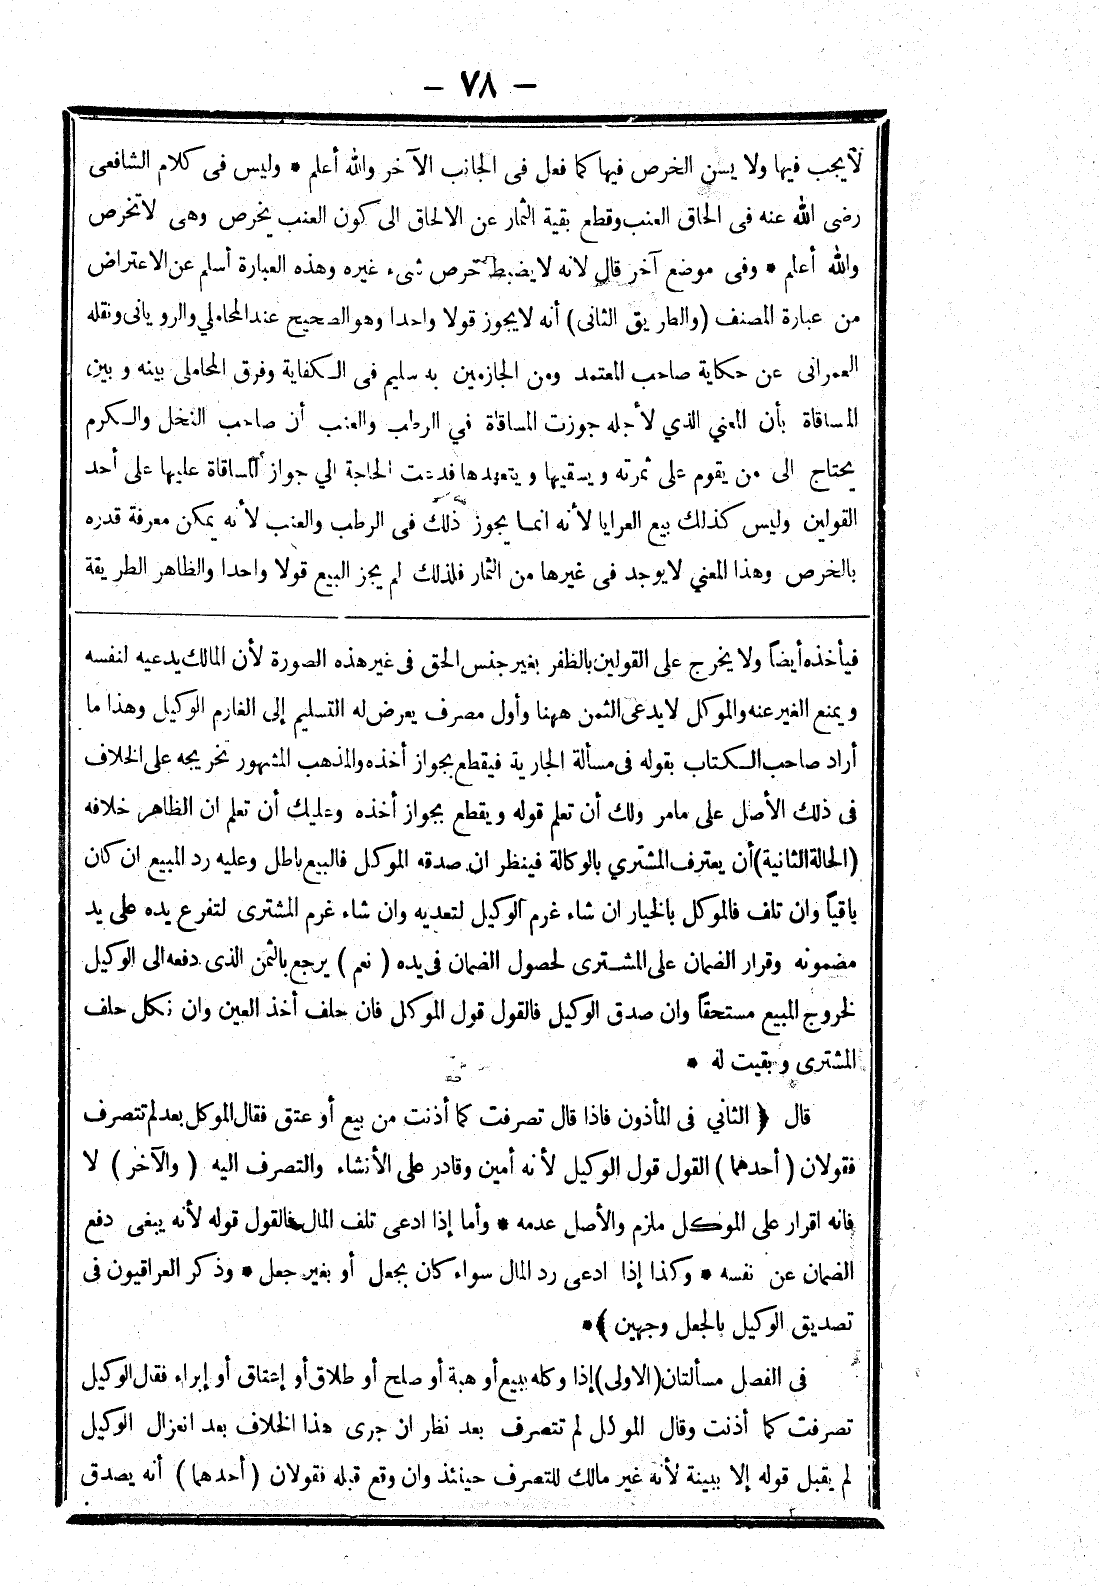 — ٧٨ —
لايجب فيها ولا يسن الخرص فيها كما فعل فى الجانب الآخر والله أعلم * وليس فى كلام الشافعى
رضى الله عنه فى الحاق العنب وقطع بقية الثمار عن الالحاق الى كون العنب يخرص وهى لاتخرص
والله أعلم * وفى موضع آخر قال لانه لايضبط خرص شىء غيره وهذه العبارة أسلم عن الاعتراض
من عبارة المصنف (والطريق الثانى) أنه لايجوز قولا واحدا وهو الصحيح عند المحاملي والرويانى ونقله
العمرانى عن حكاية صاحب المعتمد ومن الجازمين به سليم فى الكفاية وفرق المحاملى بينه وبين
المساقاة بأن المعني الذي لأجله جوزت المساقاة في الرطب والعنب أن صاحب النخل والكرم
يحتاج الى من يقوم على ثمرته ويسقيها ويتعهدها فدعت الحاجة الي جواز المساقاة عليها على أحد
القولين وليس كذلك بيع العرايا لأنه انما يجوز ذلك فى الرطب والعنب لأنه يمكن معرفة قدره
بالخرص وهذا المعني لايوجد فى غيرها من الثمار فلذلك لم يجز البيع قولا واحدا والظاهر الطريقة
فيأخذه أيضاً ولا يخرج على القولين بالظفر بغير جنس الحق فى غير هذه الصورة لأن المالك يدعيه لنفسه
ويمنع الغير عنه والموكل لايدعى الثمن ههنا وأول مصرف يعرض له التسليم إلى الغارم الوكيل وهذا ما
أراد صاحب الكتاب بقوله فى مسألة الجارية فيقطع بجواز أخذه والمذهب المشهور تخريجه على الخلاف
فى ذلك الأصل على مامر ولك أن تعلم قوله ويقطع بجواز أخذه وعليك أن تعلم ان الظاهر خلافه
(الحالة الثانية) أن يعترف المشتري بالوكالة فينظر ان صدقه الموكل فالبيع باطل وعليه رد المبيع ان كان
باقياً وان تلف فالموكل بالخيار ان شاء غرم الوكيل لتعديه وان شاء غرم المشترى لتفرع يده على يد
مضمونه وقرار الضمان على المشترى لحصول الضمان فى يده ( نعم ) يرجع بالثمن الذى دفعه الى الوكيل
لخروج المبيع مستحقاً وان صدق الوكيل فالقول قول الموكل فان حلف أخذ العين وان نكل حلف
المشترى وبقيت له *
قال ﴿ الثاني فى المأذون فاذا قال تصرفت كما أذنت من بيع أو عتق فقال الموكل بعد لم تتصرف
فقولان ( أحدهما ) القول قول الوكيل لأنه أمين وقادر على الأنشاء والتصرف اليه ( والآخر ) لا
فانه اقرار على الموكل ملزم والأصل عدمه * وأما إذا ادعى تلف المال فالقول قوله لأنه يبغى دفع
الضمان عن نفسه * وكذا إذا ادعى رد المال سواء كان بجعل أو بغير جعل * وذكر العراقيون فى
تصديق الوكيل بالجعل وجهين ﴾ *
فى الفصل مسألتان (الاولى) إذا وكله ببيع أو هبة أو صلح أو طلاق أو إعتاق أو إبراء فقال الوكيل
تصرفت كما أذنت وقال الموكل لم تتصرف بعد نظر ان جرى هذا الخلاف بعد انعزال الوكيل
لم يقبل قوله إلا ببينة لأنه غير مالك للتصرف حينئذ وان وقع قبله فقولان ( أحدهما ) أنه يصدق